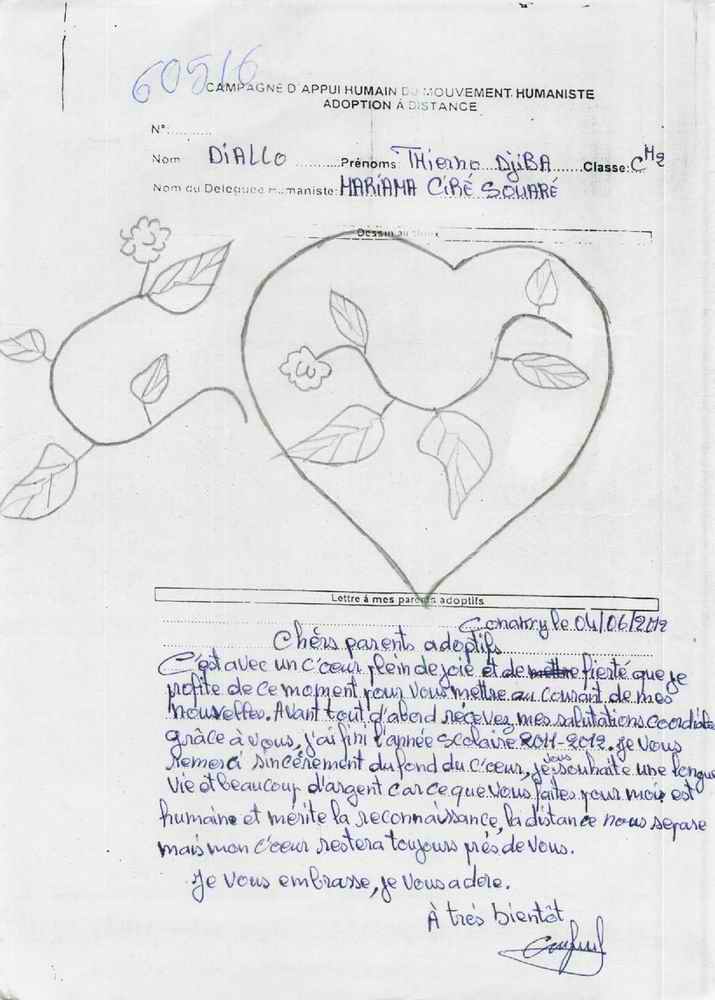 60516
CAMPAGNE D'APPUI HUMAIN DU MOUVEMENT HUMANISTE
ADOPTION À DISTANCE
N°:
Nom DiALLO Prénoms: THierno DjiBA Classe: CM2
Nom du Deleguee Humaniste: MARiAMA CiRÉ SOUARÉ
Dessin au
Lettre à mes parents adoptifs
Conakry le 04/06/2012
Chérs parents adoptifs
C'est avec un c'œur plein de joie et de mettre fierté que je
profite de ce moment pour vous mettre au courant de mes
nouvelles. Avant tout d'abord récevez mes salutations coordiale
grâce à vous, j'ai fini l'année scolaire 2011-2012. je vous
remerci sincérement du fond du c'œur, je vous souhaite une longue
vie et beaucoup d'argent car ce que vous faites pour moi est
humaine et mérite la reconnaissance, la distance nous separe
mais mon c'œur restera toujours près de vous.
Je vous embrasse, je vous adore.
À très bientôt